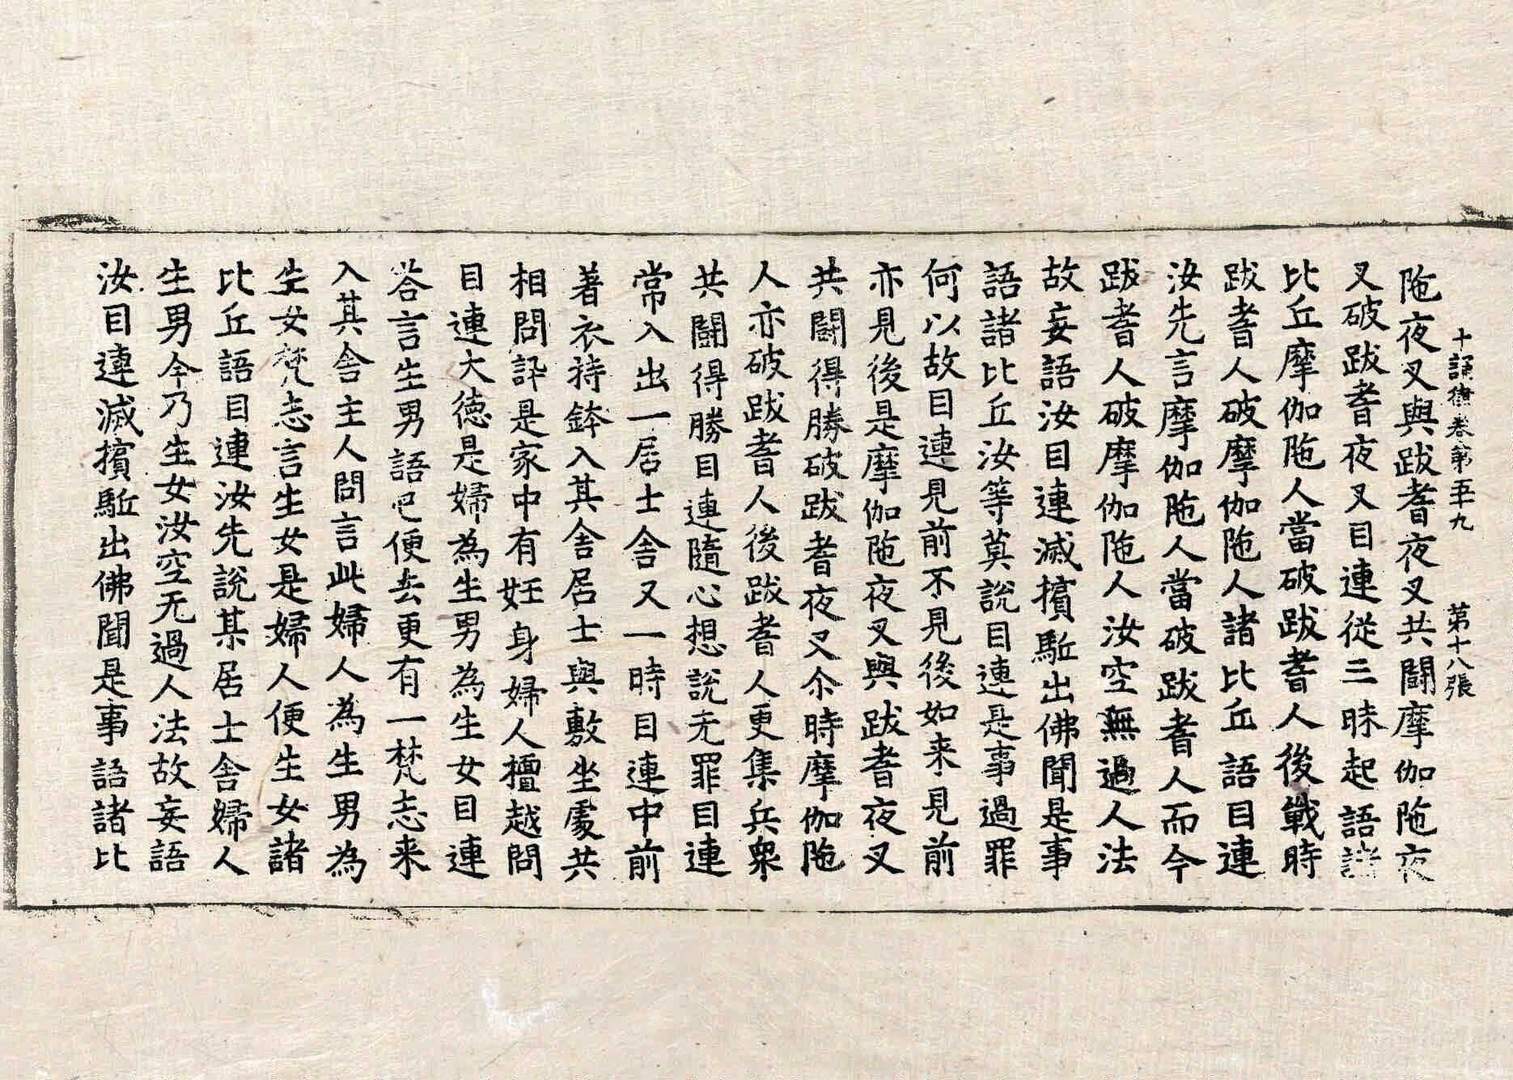 十誦律卷第五十九　第十八張
陁夜叉與跋耆夜叉共鬪摩伽陁夜
叉破跋耆夜叉目連從三昧起語諸
比丘摩伽陁人當破跋耆人後戰時
跋耆人破摩伽陁人諸比丘語目連
汝先言摩伽陁人當破跋耆人而今
跋耆人破摩伽陁人汝空無過人法
故妄語汝目連滅擯駈出佛聞是事
語諸比丘汝等莫說目連是事過罪
何以故目連見前不見後如来見前
亦見後是摩伽陁夜叉與跋耆夜叉
共鬪得勝破跋耆夜叉尒時摩伽陁
人亦破跋耆人後跋耆人更集兵衆
共鬪得勝目連隨心想說无罪目連
常入出一居士舍又一時目連中前
著衣持鉢入其舍居士與敷坐處共
相問訊是家中有妊身婦人檀越問
目連大德是婦為生男為生女目連
答言生男語已便去更有一梵志来
入其舍主人問言此婦人為生男為
生女梵志言生女是婦人便生女諸
比丘語目連汝先說某居士舍婦人
生男今乃生女汝空无過人法故妄語
汝目連滅擯駈出佛聞是事語諸比